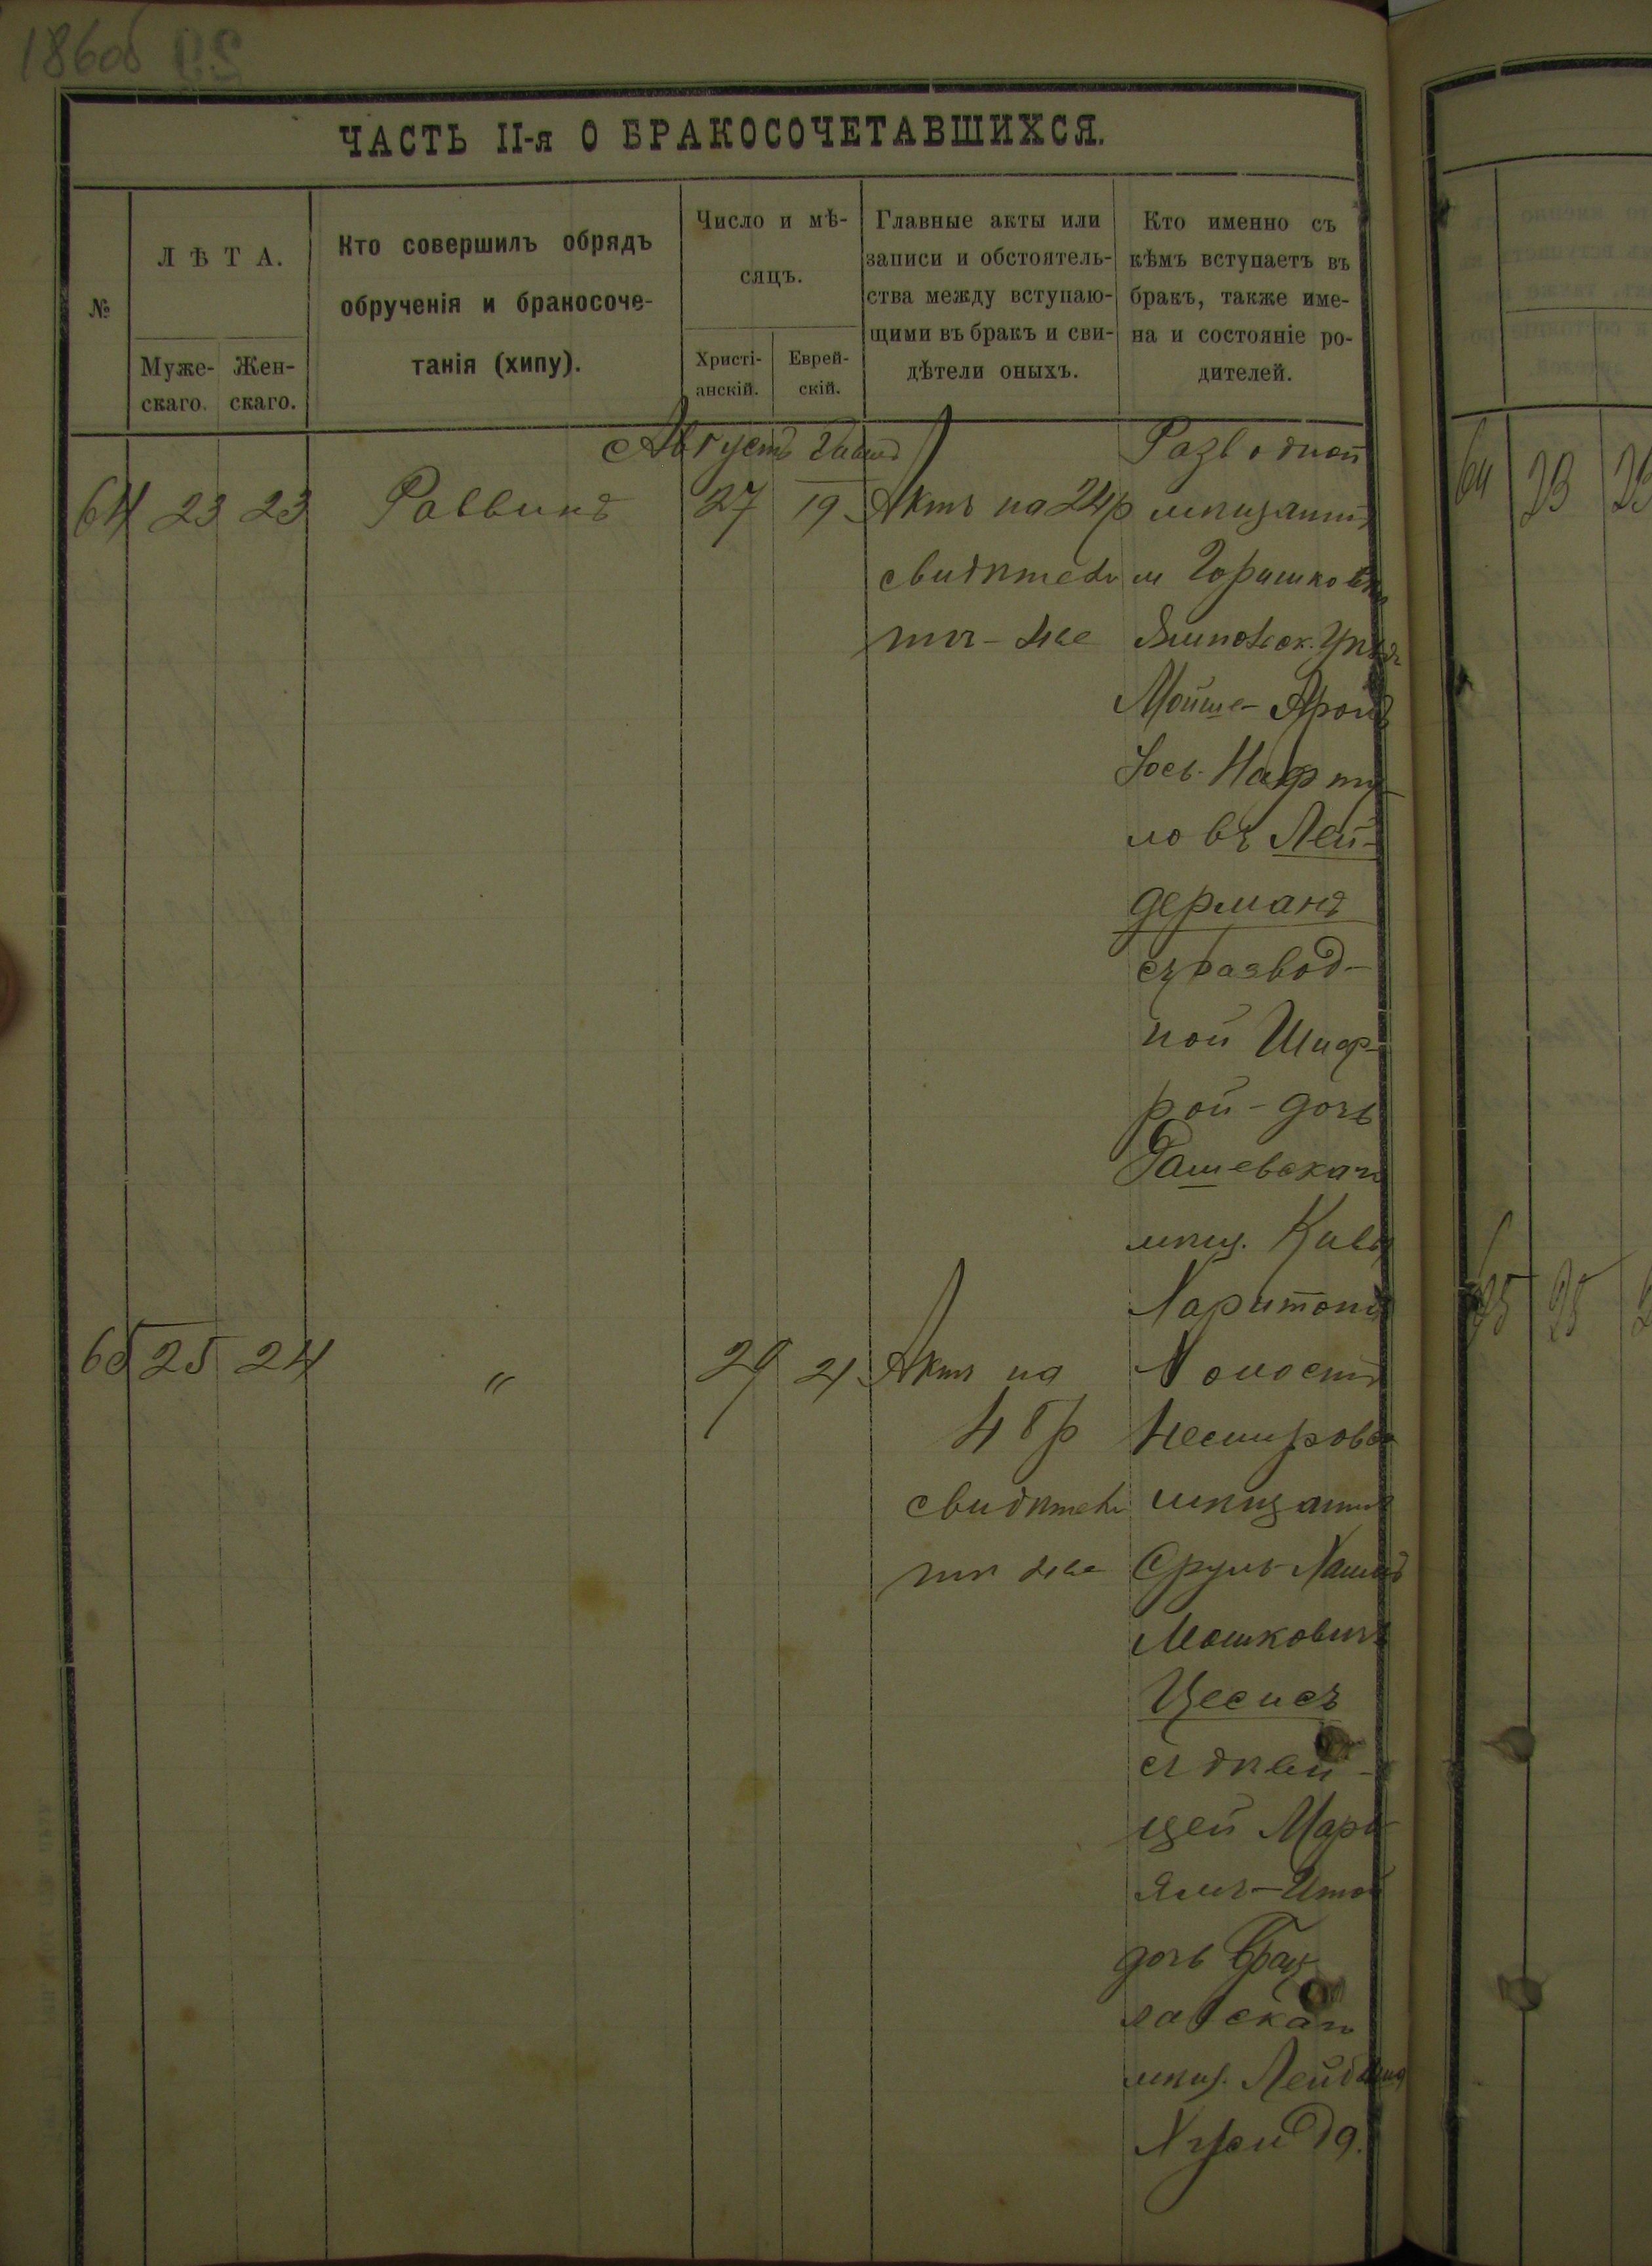 186об
ЧАСТЬ II-я О БРАКОСОЧЕТАВШИХСЯ.
№
ЛѢТА.
Муже-
скаго.
Жен-
скаго.
Кто совершилъ обрядъ
обрученія и бракосоче-
танія (хипу).
Число и мѣ-
сяцъ.
Христі-
анскій.
Еврей-
скій.
Главные акты или
записи и обстоятель-
ства между вступаю-
щими въ бракъ и сви-
дѣтели оныхъ.
Кто именно съ
кѣмъ вступаетъ въ
бракъ, также име-
на и состояніе ро-
дителей.
Августъ
64 23 23 Раввинъ 27 19
Актъ на 24р
свидѣтели
тѣ-же
Разводной
мѣщанинъ
м
Мойше-Аронъ
Іос. Нафту-
ловъ Лей-
дерманъ
съ развод-
ной Шиф-
рой-дочь
Рашевскаго
мѣщ.
Харитона
65 25 24 " 29 21
Актъ на
48р
свидѣтели
тѣ же
Холостъ
Немировск
мѣщанинъ
Сруль-Хаимъ
Мошковичъ
Цесисъ
съ дѣви-
цей Марь-
ямъ-Итой
дочь Брац-
лавскаго
мѣщ.
64 23 23
65 25